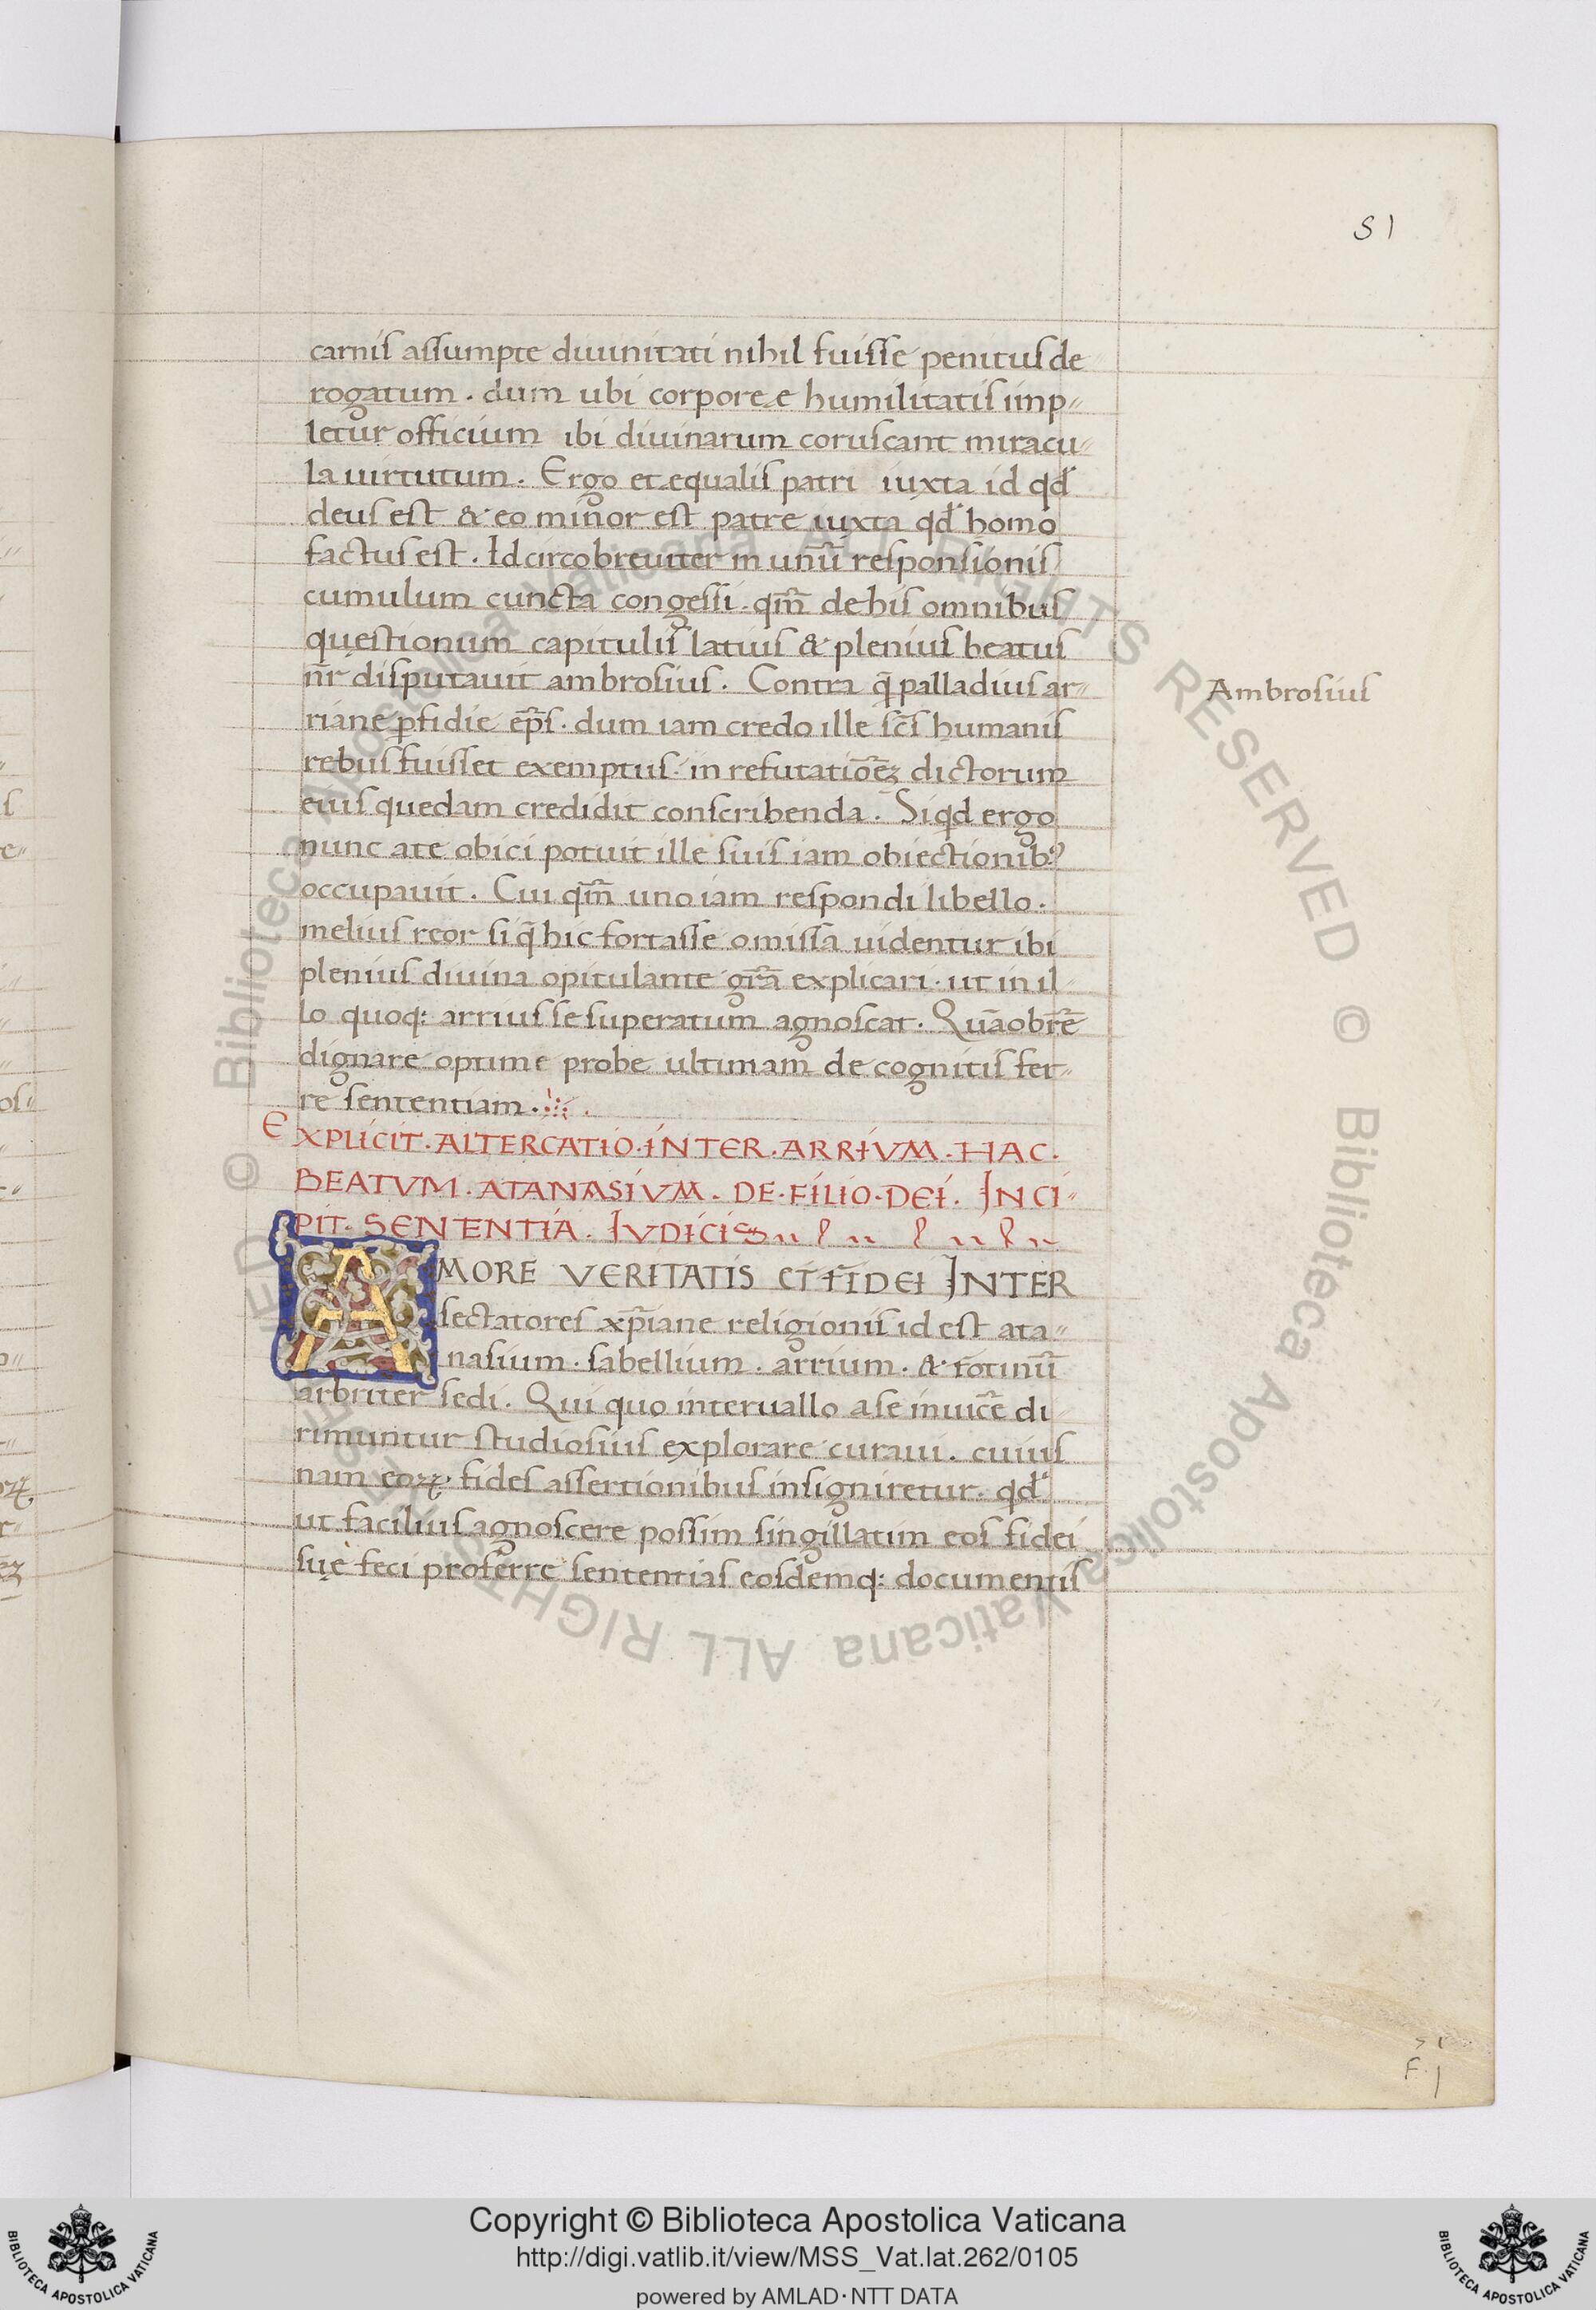 51
carnis assumpte diuinitati nihil fuisse penitus de
rogatum . dum ubi corporee humilitatis imp''
letur officium ibi diuinarum coruscant miracu''
la uirtutum . Ergo et equalis patri iuxta id qd'
deus est & eo minor est patre iuxta qd' homo
factus est . Idcirco breuiter in unū responsionis
cumulum cuncta congessi . qm̄ de his omnibus
questionum capitulis latius & plenius beatus
nr̄ disputauit ambrosius . Contra q̄ palladius ar''
Ambrosius
riane ꝑfidie ep̄s . dum iam credo ille sc̄s humanis
rebus fuisset exemptus . in refutatiōēʒ dictorum
eius quedam credidit conscribenda . Siqd ergo
nunc a te obici potuit ille suis iam obiectionib;
occupauit . Cui qm̄ uno iam respondi libello .
melius reor si q̄ hic fortasse omissa uidentur ibi
plenius diuina opitulante grā explicari . ut in il''
lo quoq: arrius se superatum agnoscat . Quāobrē
dignare optime probe ultimam de cognitis fer''
re sententiam .
EXPLICIT . ALTERCATIO . INTER . ARRIVM . HAC .
BEATVM . ATANASIVM . DE . FILIO . DEI . INCI''
PIT . SENTENTIA . IVDICIS
AMORE VERITATIS ET FIDEI INTER
sectatores xp̄iane religionis id est ata''
nasium . sabellium . arrium . & fotinū
arbiter sedi . Qui quo interuallo a se inuicē di''
rimuntur studiosius explorare curaui . cuius
nam eoꝝ fides assertionibus insigniretur . qd'
ut facilius agnoscere possim singillatim eos fidei
suę feci proferre sententias eosdemq: documentis
F. 1
© Biblioteca Apostolica Vaticana ALL RIGHTS RESERVED © Biblioteca Apostolica Vaticana ALL RIGHTS RESERVED
Copyright © Biblioteca Apostolica Vaticana
http://digi.vatlib.it/view/MSS_Vat.lat.262/0105
powered by AMLAD·NTT DATA
BIBLIOTECA APOSTOLICA VATICANA
BIBLIOTECA APOSTOLICA VATICANA